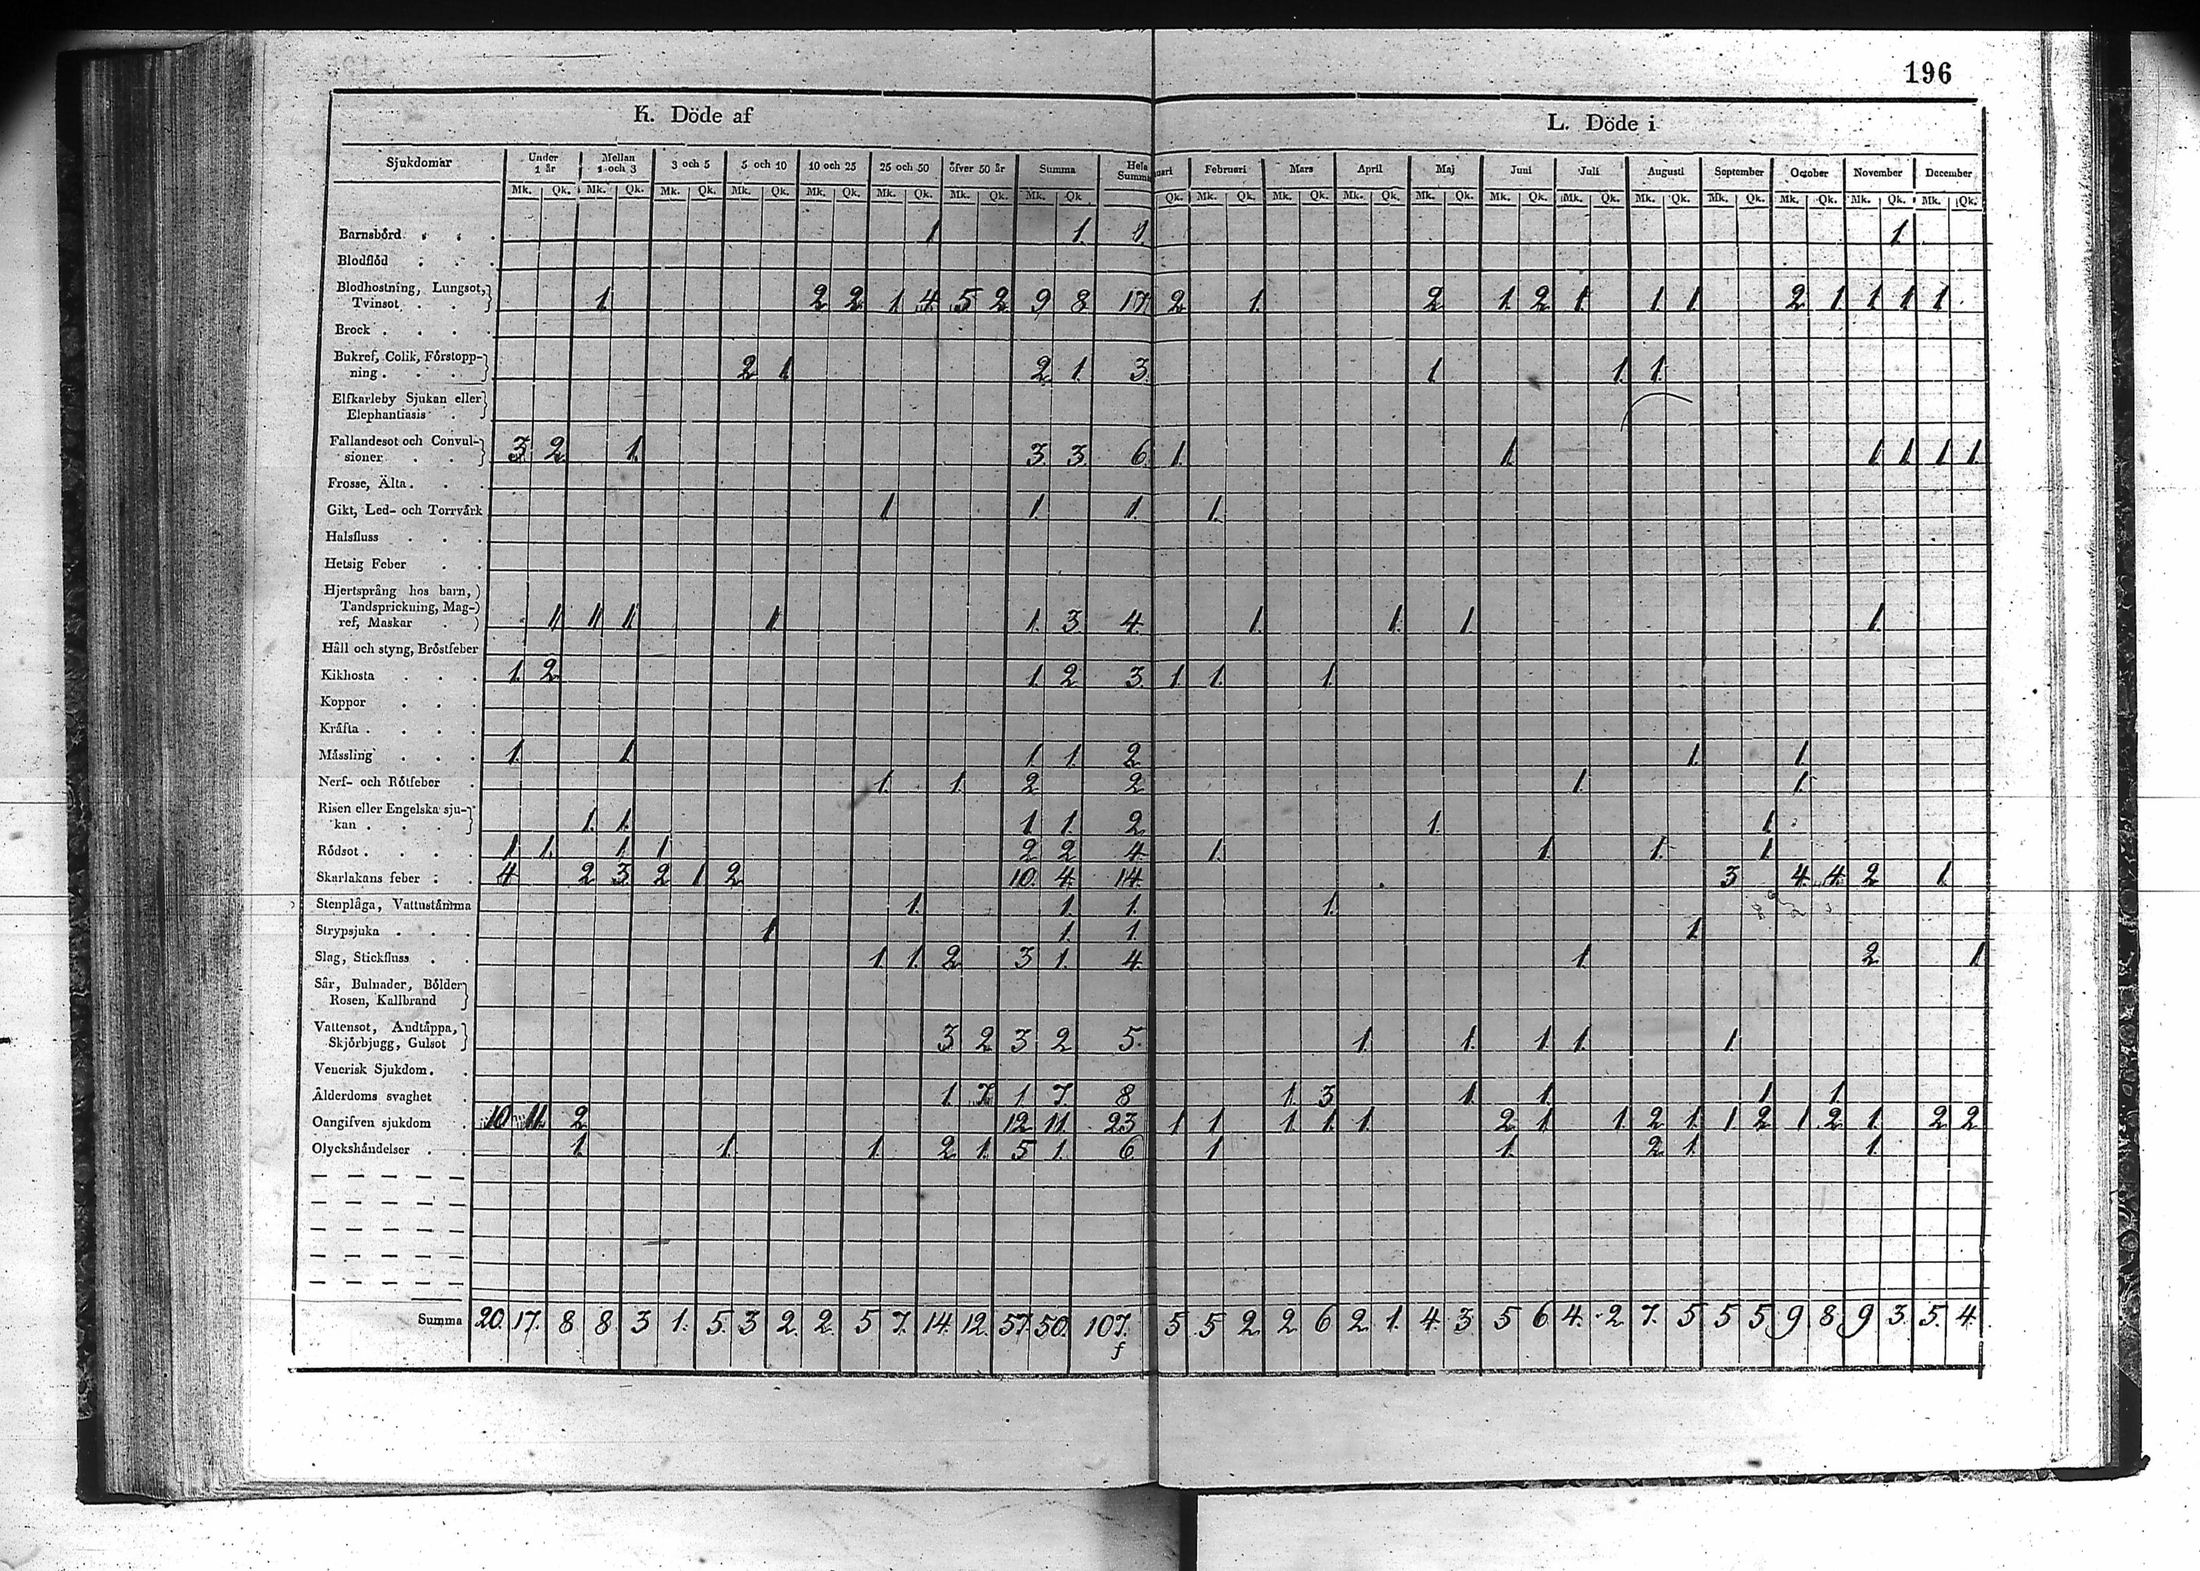 196
K. Döde af
L. Döde i
Sjukdomar Under 1 år Mellan 1 och 3 3 och 5 5 och 10 10 och 25 25 och 50 öfver 50 år Summa Hela Summa uari Februari Mars April Maj Juni Juli Augusti September October November December
Mk. Qk. Mk. Qk. Mk. Qk. Mk. Qk. Mk. Qk. Mk. Qk. Mk. Qk. Mk. Qk. Qk. Mk. Qk. Mk. Qk. Mk. Qk. Mk. Qk. Mk. Qk. Mk. Qk. Mk. Qk. Mk. Qk. Mk. Qk. Mk. Qk. Mk. Qk.
Barnsbörd . . . 1 1. 1. 1.
Blodflöd . . .
Blodhostning, Lungsot,
Tvinsot . . 1. 2 2 1 4 5 2 9 8 17. 2 1. 2 1 2 1 1. 1. 2 1. 1 1 1
Brock . . . .
Bukref, Colik, Förstopp-
ning . . . 2 1 2 1. 3. 1. 1. 1.
Elfkarleby Sjukan eller
Elephantiasis .
Fallandesot och Convul-
sioner . . 3 2 1. 3. 3. 6. 1. 1. 1 1 1 1.
Frosse, Älta . . .
Gikt, Led- och Torrvärk 1 1. 1. 1.
Halsfluss . . .
Hetsig Feber . .
Hjertsprång hos barn,
Tandsprickning, Mag-
ref, Maskar . 1 1 1 1. 1. 3. 4. 1. 1. 1. 1.
Håll och styng, Bröstfeber
Kikhosta . . . 1. 2 1. 2. 3. 1 1. 1.
Koppor . . .
Kräfta . . . .
Mässling . . . 1. 1. 1 1. 2 1. 1
Nerf- och Rötfeber . 1. 1. 2 2 1. 1.
Risen eller Engelska sju-
kan . . . 1. 1. 1 1. 2 1. 1.
Rödsot . . . . 1 1. 1 1 2 2 4 1. 1 1. 1.
Skarlakans feber . . 4 2 3 2 1 2 10. 4. 14. 3 4. 4. 2 1.
Stenplåga, Vattustämma 1. 1. 1. 1.
Strypsjuka . . . 1 1. 1 1.
Slag, Stickfluss . . 1. 1. 2 3 1. 4. 1. 2 1
Sår, Bulnader, Bölder
Rosen, Kallbrand
Vattensot, Andtäppa,
Skjörbjugg, Gulsot 3 2 3 2 5. 1. 1. 1 1. 1
Venerisk Sjukdom . .
Ålderdoms svaghet . 1. 7 1 7. 8 1 3 1 1. 1 1.
Oangifven sjukdom . 10 11 2 12 11 23 1 1 1. 1. 1 2 1 1 2 1 1 2 1 2 1. 2 2
Olyckshändelser . . 1. 1. 1. 2 1. 5 1. 6 1 1. 2 1. 1.
Summa 20. 17. 8 8 3 1. 5. 3 2 2 5 7. 14. 12. 57. 50. 107. 5 5 2 2 6 2 1. 4. 3. 5 6 4. 2 7. 5 5 5 9 8 9 3. 5. 4.
f